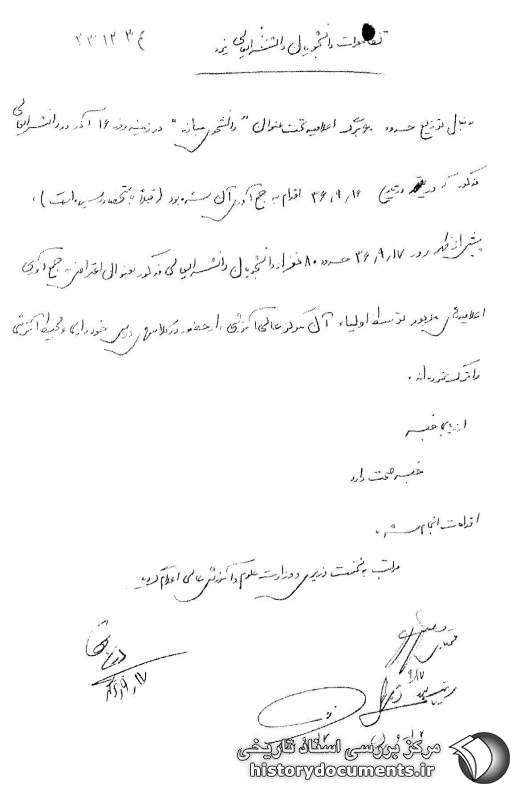 تظاهرات دانشجویان دانشسرایعالی یزد
بدنبال توزیع حدود ۶۰ برگ اعلامیه تحت عنوان "دانشجوی مبارز" در زمینه روز ۱۶ آذر در دانشسرایعالی
مذکور که در تاریخ ۳۶٫۹٫۱۶ اقدام به جمع آوری آن شده بود (قبلاً به استحضار رسیده است)،
پیش از ظهر روز ۳۶٫۹٫۱۷ حدود ۸۰ نفر از دانشجویان دانشسرایعالی مذکور بعنوان اعتراض به جمع آوری
اعلامیه‌های مزبور توسط اولیاء آن مرکز عالی آموزشی از حضور در کلاسهای درس خودداری و محیط آموزشی
را ترک نموده‌اند.
ارزیابی خبر
خبر صحت دارد
اقدامات انجام شده
مراتب به نخست وزیری و وزارت علوم و آموزش عالی اعلام گردید
۹٫۱۷
مرکز بررسی اسناد تاریخی
historydocuments.ir